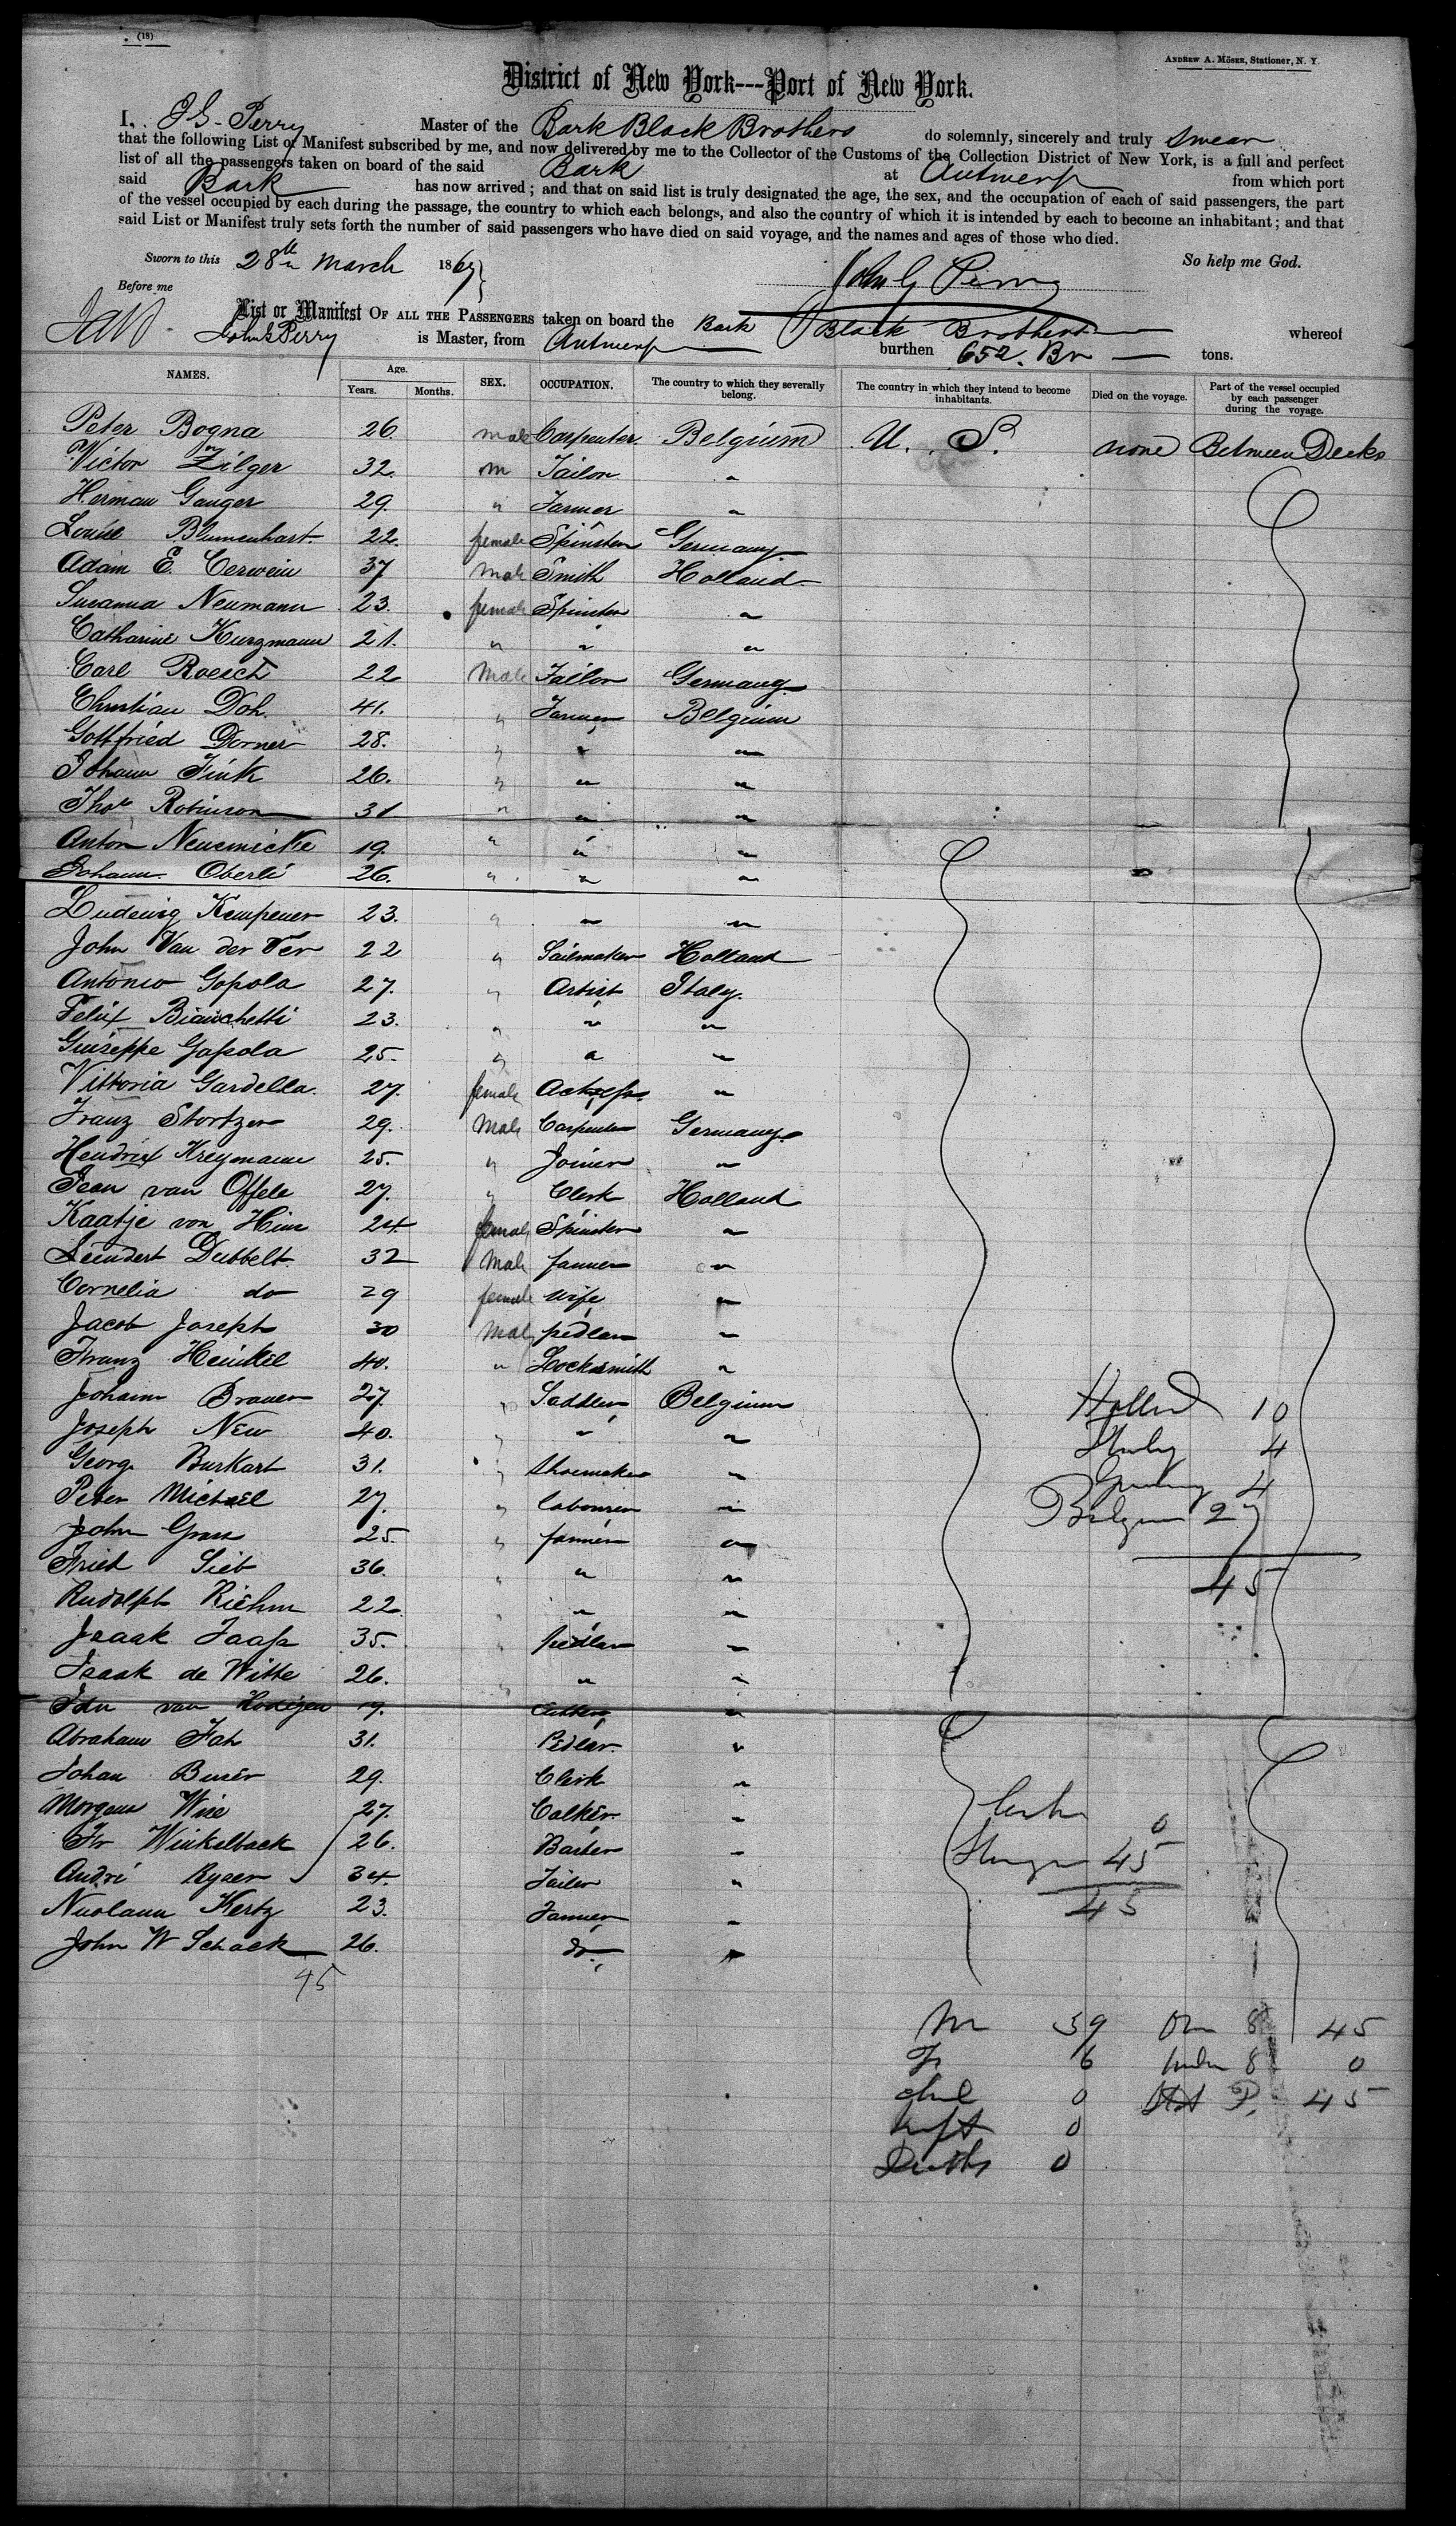 (18)
ANDREW A. MÖSER, Stationer, N. Y.
District of New York---Port of New York.
I, J G Perry Master of the Bark Black Brothers do solemnly, sincerely and truly swear
that the following List or Manifest subscribed by me, and now delivered by me to the Collector of the Customs of the Collection District of New York, is a full and perfect
list of all the passengers taken on board of the said Bark at Antwerp from which port
said Bark has now arrived; and that on said list is truly designated the age, the sex, and the occupation of each of said passengers, the part
of the vessel occupied by each during the passage, the country to which each belongs, and also the country of which it is intended by each to become an inhabitant; and that
said List or Manifest truly sets forth the number of said passengers who have died on said voyage, and the names and ages of those who died.
Sworn to this 28th March 1867 John G Perry So help me God.
Before me
List or Manifest OF ALL THE PASSENGERS taken on board the Bark Black Brothers whereof
John G Perry is Master, from Antwerp burthen 652. Br tons.
NAMES. Age. Years. Months. SEX. OCCUPATION. The country to which they severally belong. The country in which they intend to become inhabitants. Died on the voyage. Part of the vessel occupied by each passenger during the voyage.
Peter Bogna 26 male Carpenter Belgium U. S. none Between Decks
Victor Zilger 32. m Tailor "
Herman Gauger 29 " Farmer "
Louise Blumenhart. 22. female Spinster Germany
Adam E. Cerwein 37 male Smith Holland
Susanna Neumann 23. female Spinster "
Catharine Kurzmann 21. " " "
Carl Roesch 22 Male Tailor Germany
Christian Doh. 41. " Farmer Belgium
Gottfried Dorner 28. " " "
Johann Fink 26. " " "
Thos Robinson 31 " " "
Anton Neuemicke 19. " " "
Johann Oberli 26. " " "
Ludewig Kempener 23. " " "
John Van der Ver 22 " Sailmaker Holland
Antonio Gopola 27. " Artist Italy.
Felix Bianchetti 23. " " "
Guiseppe Gapola 25. " " "
Vittoria Gardella. 27. female Actress "
Franz Stortzer 29. Male Carpenter Germany
Hendrix Kreymann 25. " Joiner "
Jean van Offele 27. " Clerk Holland
Kaatje von Him 24 female Spinster "
Leendert Dubbelt. 32 Male farmer "
Cornelia do 29 female wife "
Jacob Joseph 30 Male pedlar "
Franz Heinkel 40. " Locksmith "
Johann Brauer 27. " Saddler Belgium
Holland 10
Joseph New 40. " " "
Italy 4
George Burkart 31. " Shoemaker "
Germany 4
Peter Michael 27. " labourer "
Belgium 27
John Grass 25. " farmer "
Fried Sieb 36. " " "
45
Rudolph Riehm 22 " " "
Isaak Jaafs 35. " pedlar "
Isaak de Witte 26. " " "
van 19. "
Abraham Fah 31. Pedlar. "
Johan Buser 29. Clerk "
Morgan Wise 27. Calker. "
0
Fr Winkelback 26. Barber "
45
André Ryser 34. Tailor "
45
Nicolaun Kertz 23. Farmer "
John W Schack 26. do. "
45
M 39 Over 8 45
F 6 Under 8 0
Chil 0 45
Inft 0
Deaths 0